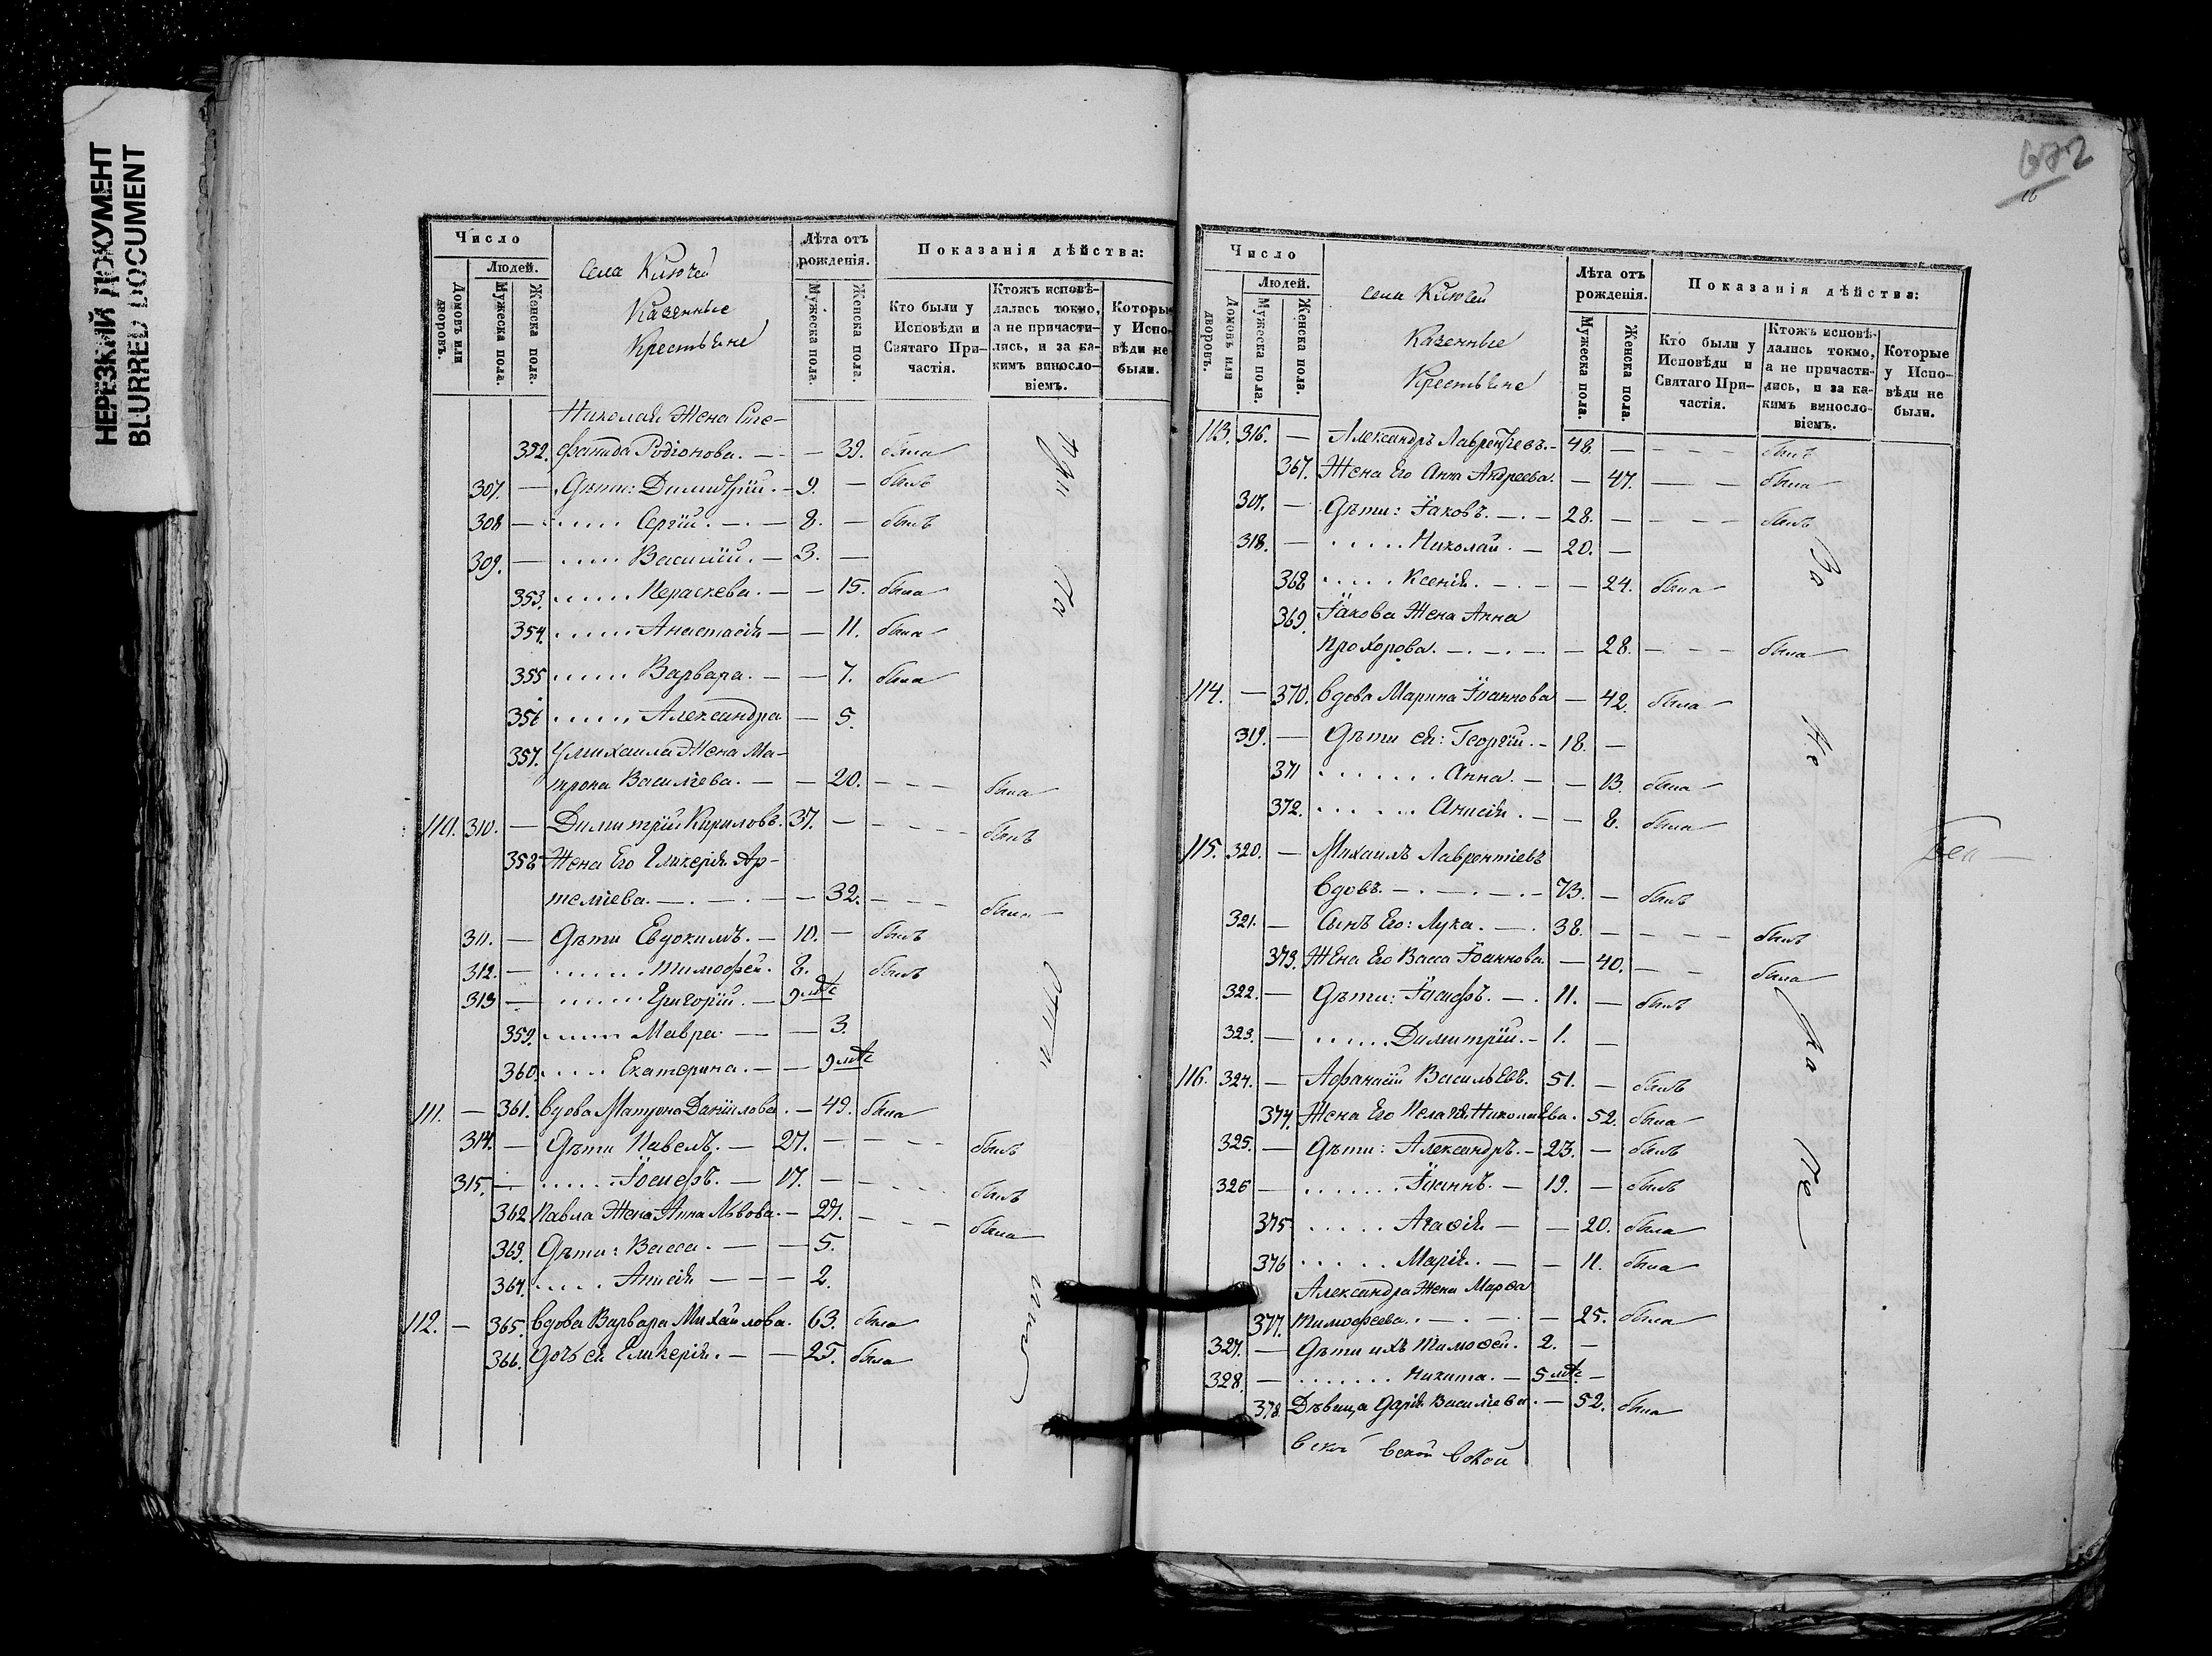 НЕРЕЗКИЙ ДОКУМЕНТ
BLURRED DOCUMENT
Число
Людей.
Домовъ или дворовъ.
Мужеска пола.
Женска пола.
села Ключей
Казенные
Крестьяне
Лѣта отъ рожденія.
Мужеска пола.
Женска пола.
Показанія дѣйства:
Кто были у Исповѣди и Святаго Причастія.
Ктожъ исповѣдались токмо, а не причастились, и за какимъ винословіемъ.
Которые у Исповѣди не были.
Николая Жена Сте-
352. фанида Родіонова. — — 39. была
307. — Дѣти: Димитрій. — 9. — былъ
308 — ..... Сергій. — 8. — былъ
309. — ..... Василій. — 3. —
353. ..... Параскева. — — 15. была
354. ..... Анастасія — — 11. была
355 ..... Варвара. — — 7. была
356 ..... Александра — 5.
357. У Михаила Жена Ма-
трона Василіева. — — 20. — — — была
110. 310. — Димитрій Кириловъ. 37. — — — — былъ
358 Жена Его Гликерія Ар-
теміева. — — — 32. — — — была
311. — Дѣти Евдокимъ. — 10. — былъ
312. — ...... Тимофей. 8. былъ
313 — ...... Григорій. — 9 мѣс
359. ..... Мавра — — 3.
360. ..... Екатерина. — — 9 мѣс
111. — 361. вдова Матрона Даніилова. — 49. была
314. — Дѣти Павелъ. — 27. — — — — былъ
315. — ...... Іосифъ. — 17. — — — — былъ
362. Павла Жена Анна Львова. — 27. — — — была
363. Дѣти: Васса. — — 5.
364. ..... Анисія — — — 2.
112. — 365. вдова Варвара Михайлова. 63. была
366. дочь ея Гликерія. — — 25. была
16
Число
Людей.
Домовъ или дворовъ.
Мужеска пола.
Женска пола.
села Ключей
Казенные
Крестьяне
Лѣта отъ рожденія.
Мужеска пола.
Женска пола.
Показанія дѣйства:
Кто были у Исповѣди и Святаго Причастія.
Ктожъ исповѣдались токмо, а не причастились, и за какимъ винословіемъ.
Которые у Исповѣди не были.
113. 316. — Александръ Лаврентіевъ. — 48. — — — — былъ
367. Жена Его Анна Андреева. — 47. — — была
317. — Дѣти: Іаковъ. — — 28. — — — — былъ
318. — ..... Николай. — 20. —
368 ..... Ксенія. — — — 24. была
369. Іакова Жена Анна
Прохорова. — — — — 28. — — — была
114. — 370. вдова Марина Іоаннова — 42. была
319. — Дѣти ея: Георгій. — 18. —
371 ....... Анна. — — 13. была
372. ...... Анисія. — — 8. была
115. 320. — Михаилъ Лаврентіевъ
вдовъ. — — — — 73. — былъ
321. — Сынъ Его: Лука. — 38. — — — — былъ
373. Жена Его Васса Іоаннова. — 40. — — была
322. — Дѣти: Іосифъ. — 11. — былъ
323. — ..... Димитрій. — 1. —
116. 324. — Афанасій Васильевъ. 51. — былъ
374. Жена Его Пелагія Николаева. 52. была
325. — Дѣти: Александръ. — 23. — былъ
326 — ....... Іоаннъ. — 19. — былъ
375. ..... Агафія — — 20. была
376 ..... Марія. — — 11. была
Александра Жена Марѳа
377. Тимофеева. — — — 25. была
327. — Дѣти ихъ Тимоѳей. 2. —
328. — ....... Никита. — 5 мѣс —
378. Дѣвица Дарія Василіева. — 52. была